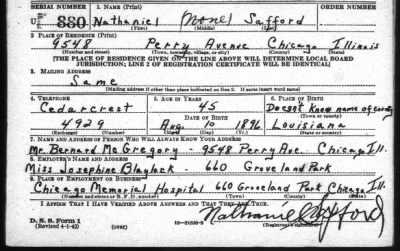 SERIAL NUMBER 1. NAME (Print) ORDER NUMBER
U 880 Nathaniel (None) Safford
(First) (Middle) (Last)
2. PLACE OF RESIDENCE (Print)
9548 Perry Avenue Chicago Illinois
(Number and street) (Town, township, village, or city) (County) (State)
[THE PLACE OF RESIDENCE GIVEN ON THE LINE ABOVE WILL DETERMINE LOCAL BOARD
JURISDICTION; LINE 2 OF REGISTRATION CERTIFICATE WILL BE IDENTICAL]
3. MAILING ADDRESS
Same
(Mailing address if other than place indicated on line 2. If same insert word same)
4. TELEPHONE 5. AGE IN YEARS 6. PLACE OF BIRTH
Cedarcrest 45 Doesn't Know name of county
DATE OF BIRTH (Town or county)
4929 Aug 10 1896 Louisiana
(Exchange) (Number) (Mo.) (Day) (Yr.) (State or country)
7. NAME AND ADDRESS OF PERSON WHO WILL ALWAYS KNOW YOUR ADDRESS
Mr. Bernard McGregory - 9548 Perry Ave. Chicago Ill.
8. EMPLOYER'S NAME AND ADDRESS
Miss Josephine Blaylock - 660 Groveland Park
9. PLACE OF EMPLOYMENT OR BUSINESS
Chicago Memorial Hospital 660 Groveland Park Chicago Ill.
(Number and street or R. F. D. number) (Town) (County) (State)
I AFFIRM THAT I HAVE VERIFIED ABOVE ANSWERS AND THAT THEY ARE TRUE.
D. S. S. Form 1
(Revised 4-1-42) (over) 16-21630-2 Nathaniel Safford
(Registrant's signature)